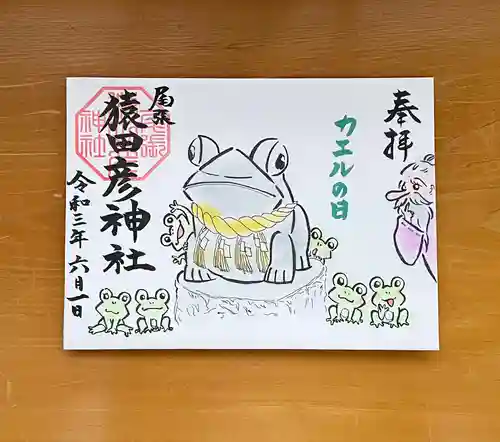 奉拝
カエルの日
尾張
猿田彦神社
令和三年 六月一日